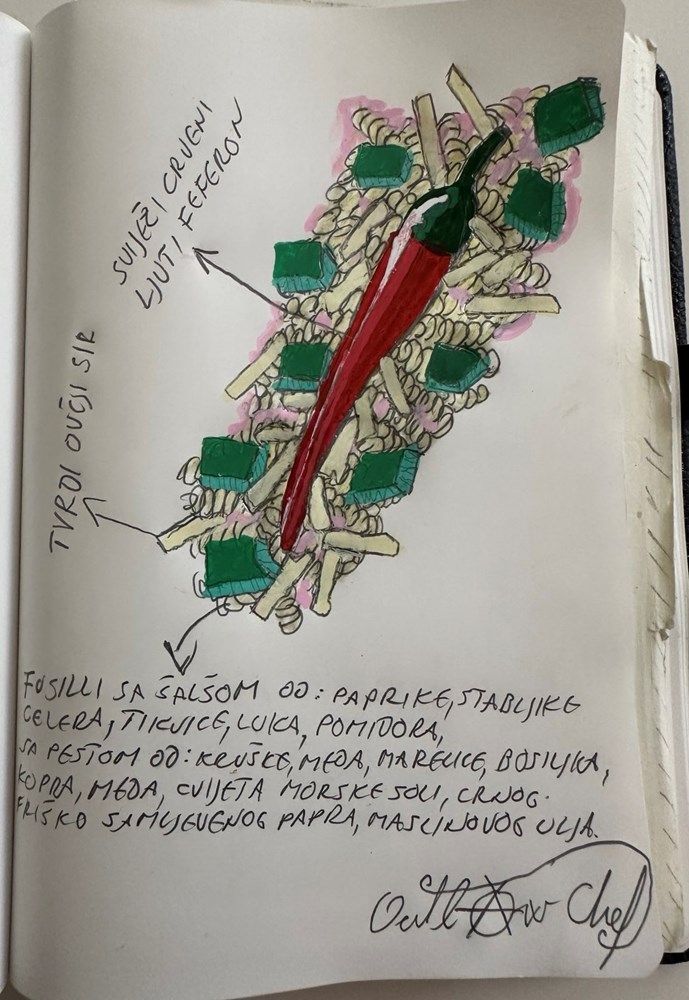 SVIJEŽI CRVENI
LJUTI FEFERON
TVRDI OVČJI SIR
FUSILLI SA ŠALŠOM OD: PAPRIKE, STABLJIKE
CELERA, TIKVICE, LUKA, POMIDORA,
SA PESTOM OD: KRUŠKE, MEDA, MARELICE, BOSILJKA,
KOPRA, MEDA, CVIJETA MORSKE SOLI, CRNOG
FRIŠKO SAMLJEVENOG PAPRA, MASLINOVOG ULJA.
OutlAw Chef